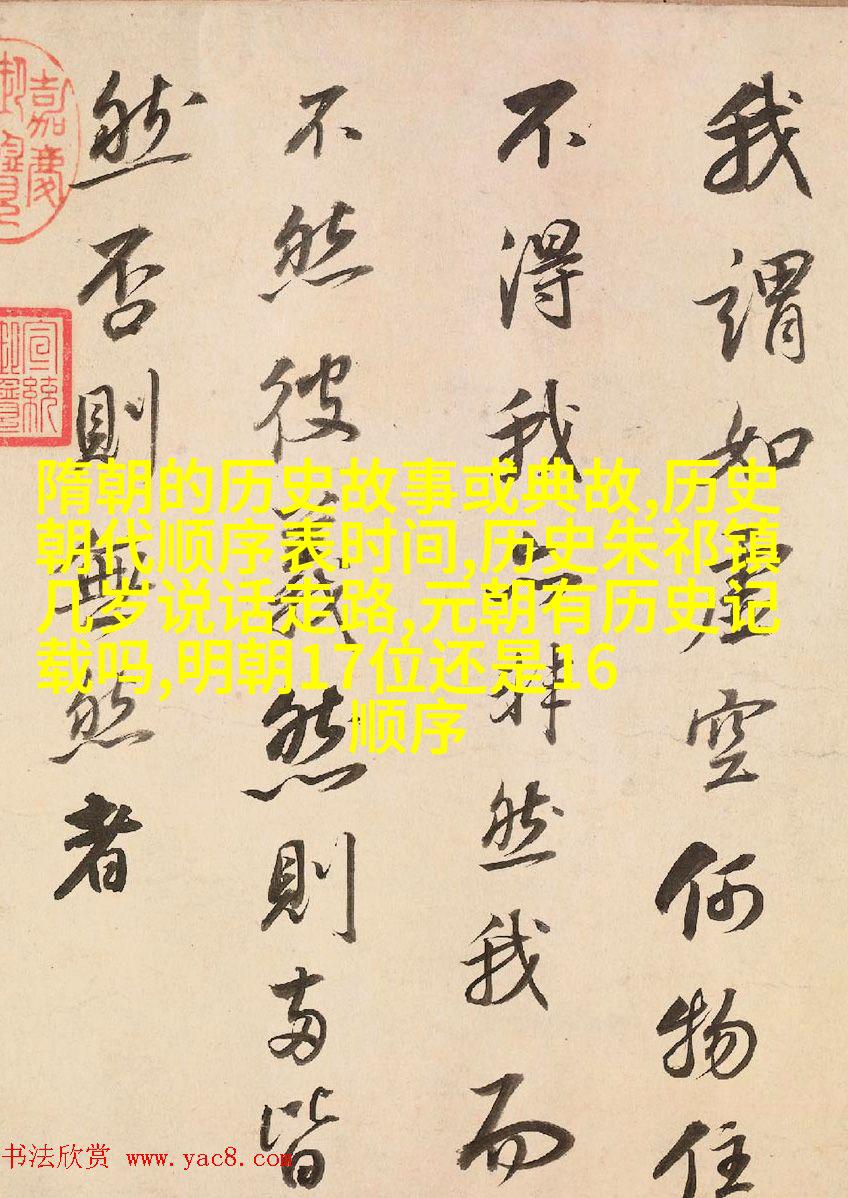 我謂如虛空何物住
不得我然我而
不然彼然則兩皆
然否則無然者
嘉慶
宣統
隋朝的历史故事或典故,历史
朝代顺序表时间,历史朱祁镇
几岁说话走路,元朝有历史记
载吗,明朝17位还是16
顺序
书法欣赏 www.yac8.com